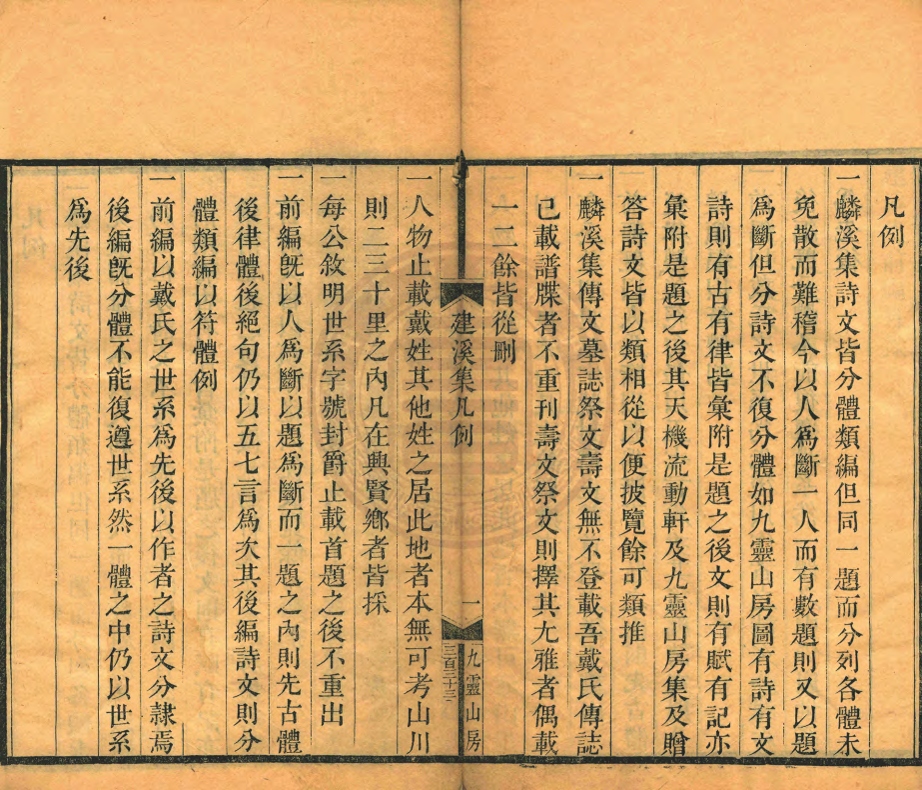 凡例
一麟溪集詩文皆分體類編但同一題而分列各體未
免散而難稽今以人爲斷一人而有數題則又以題
爲斷但分詩文不復分體如九靈山房圖有詩有文
詩則有古有律皆彙附是題之後文則有賦有記亦
彙附是題之後其天機流動軒及九靈山房集及贈
答詩文皆以類相從以便披覽餘可類推
一麟溪集傳文墓誌祭文壽文無不登載吾戴氏傳誌
已載譜牒者不重刊壽文祭文則擇其尤雅者偶載
一二餘皆從刪
建溪集凡例
一
九靈山房
三百三十三
一人物止載戴姓其他姓之居此地者本無可考山川
則二三十里之內凡在興賢鄉者皆採
一每公敘明世系字號封爵止載首題之後不重出
一前編既以人爲斷以題爲斷而一題之內則先古體
後律體後絕句仍以五七言爲次其後編詩文則分
體類編以符體例
一前編以戴氏之世系爲先後以作者之詩文分隷焉
後編既分體不能復遵世系然一體之中仍以世系
爲先後